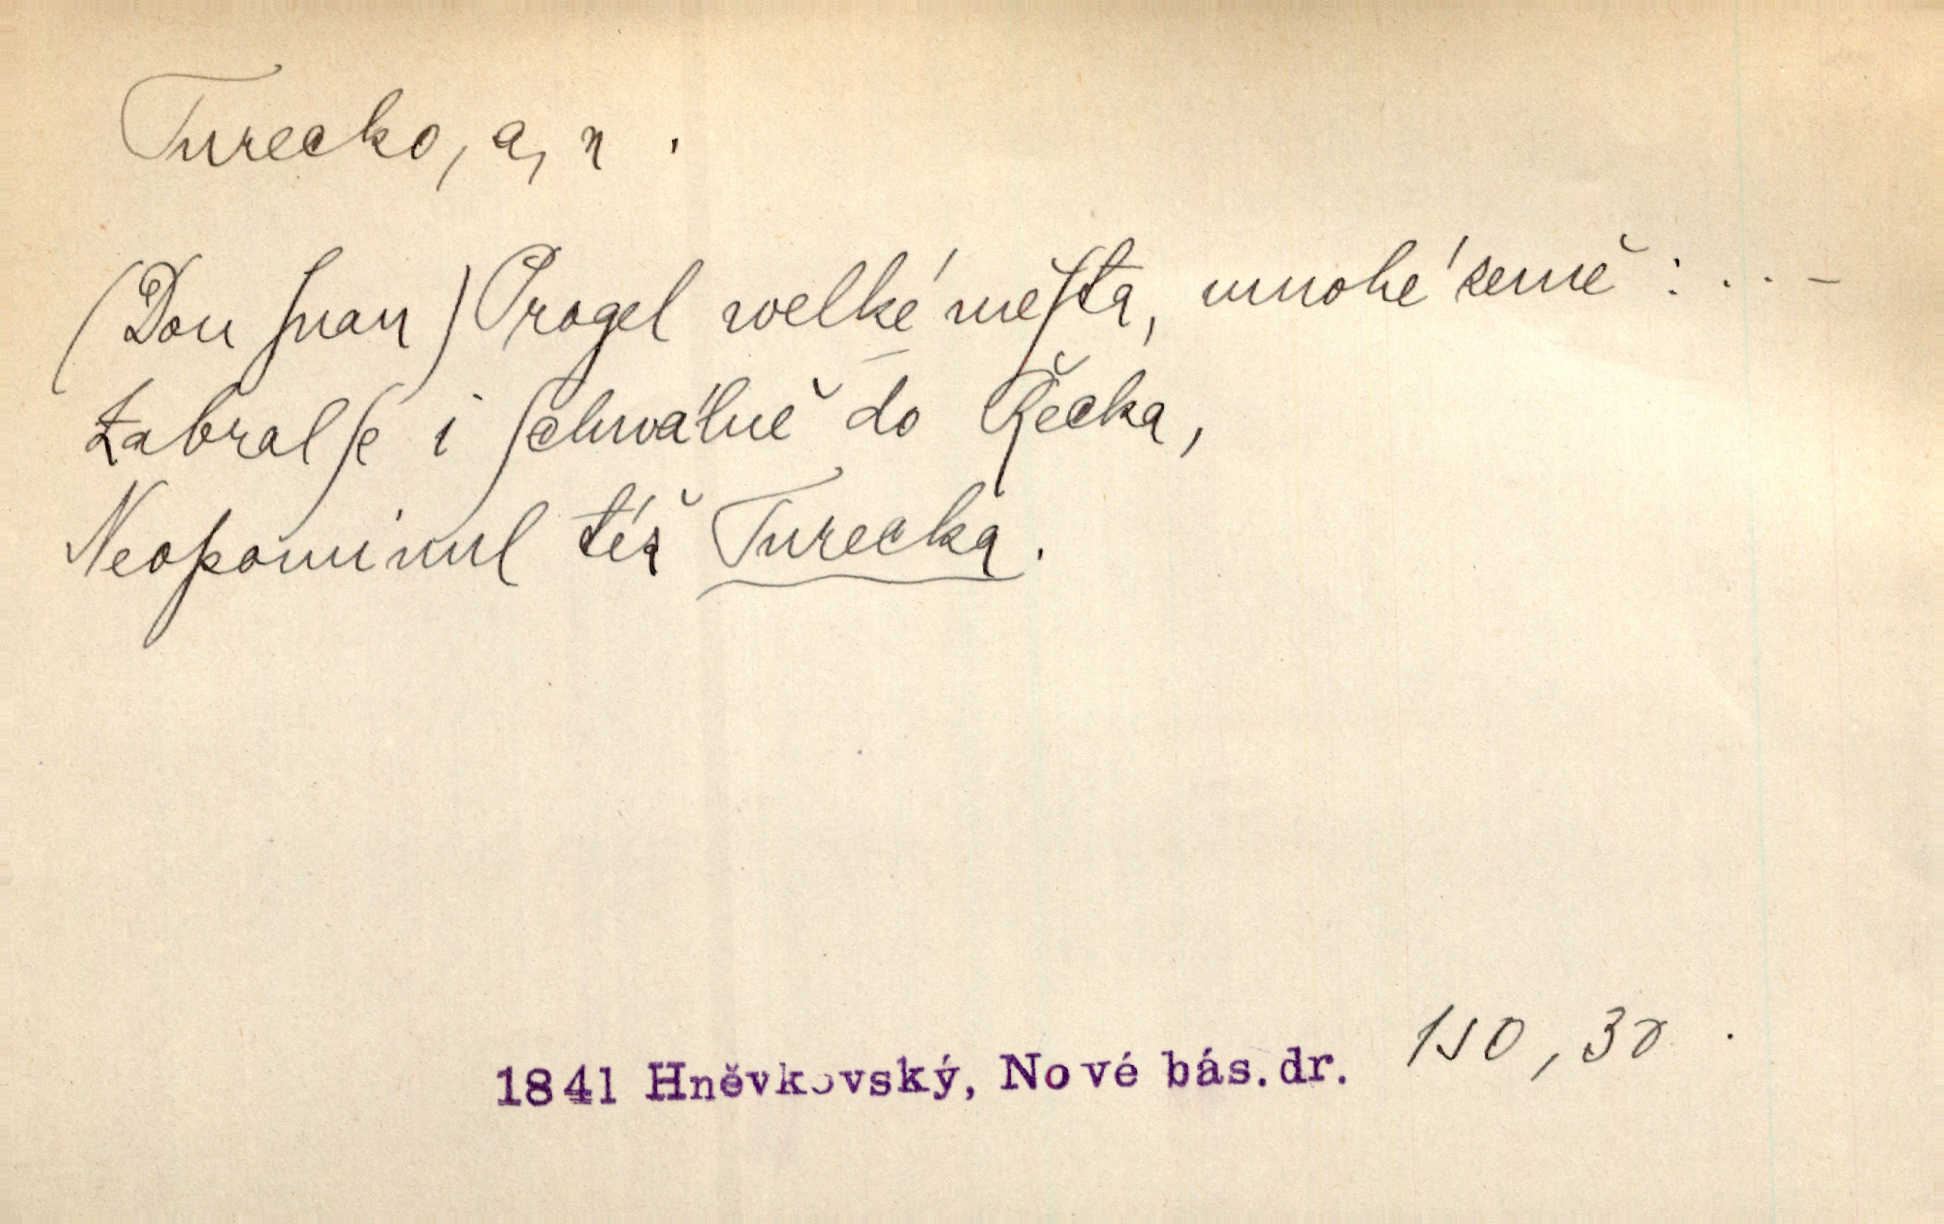 Turecko, a, n.
(Don Juan) Progel welké měſta, mnohé země: .. –
Zabral ſe i ſchwálně do Řecka,
Neopominul též Turecka.
1841 Hněvkovský, Nové bás. dr. 150, 30.